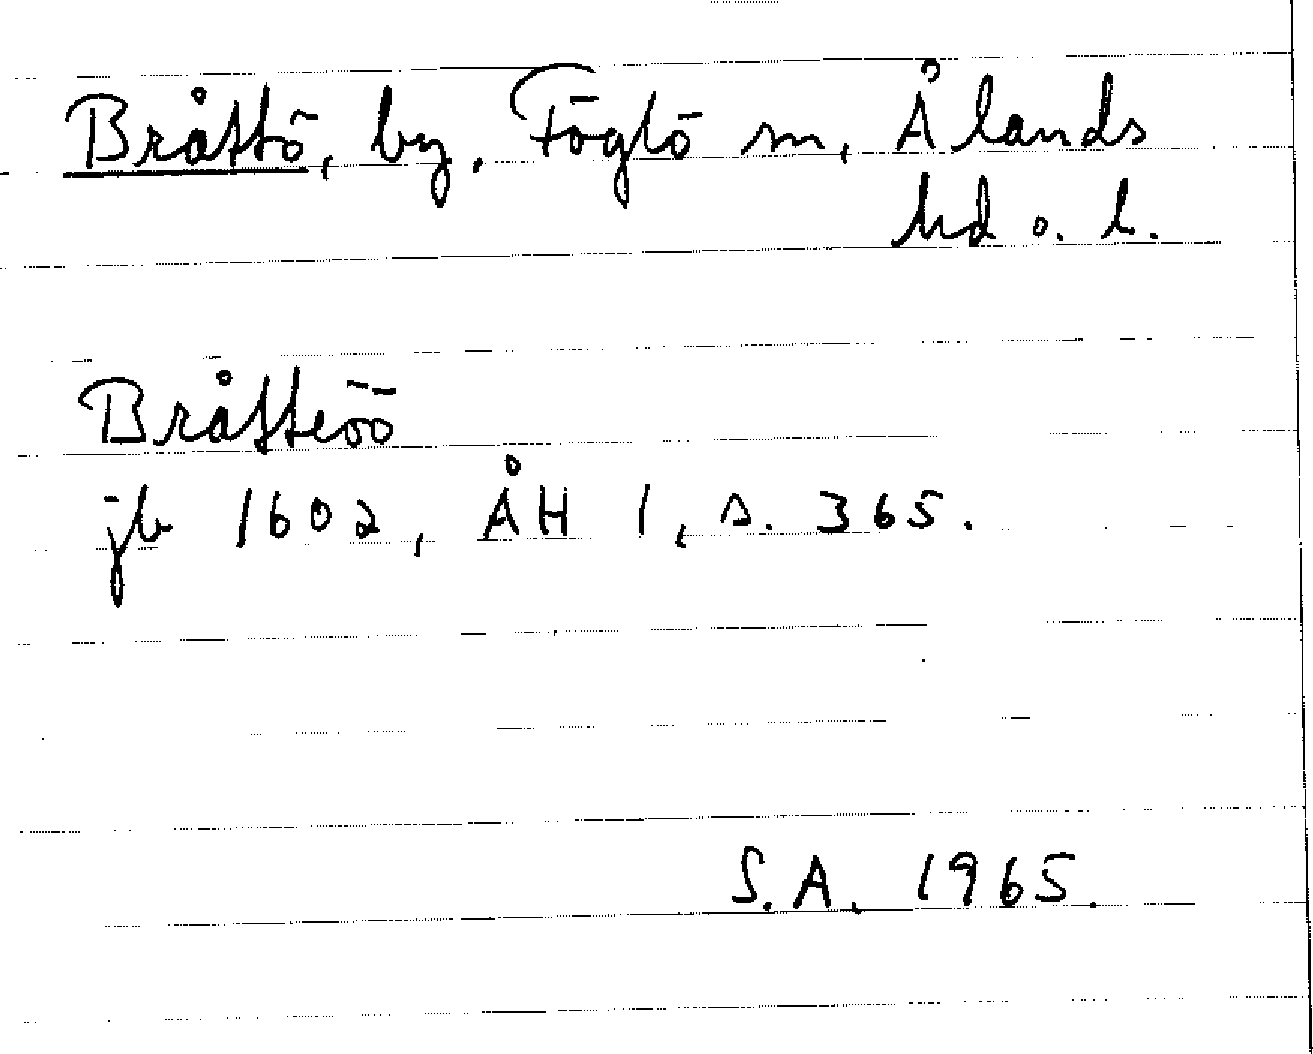 Bråttö, by, Föglö sn, Ålands
hd o. l.
Bråtteöö
jb 1602, ÅH 1, s. 365.
S.A. 1965.